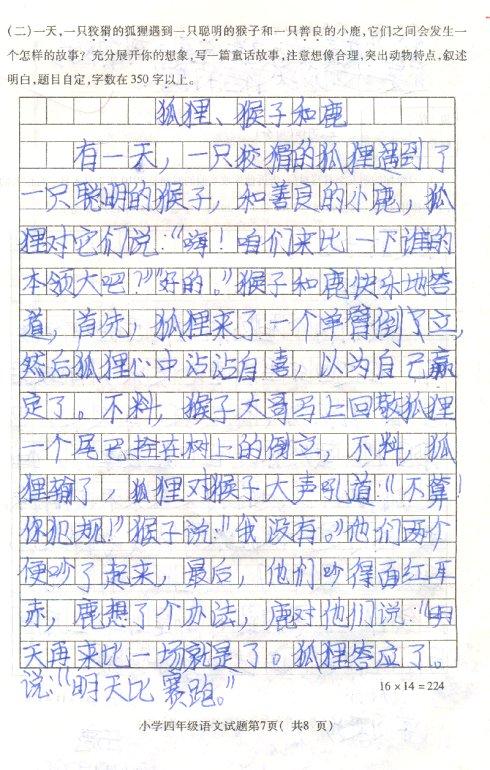 (二)一天,一只狡猾的狐狸遇到一只聪明的猴子和一只善良的小鹿,它们之间会发生一
个怎样的故事？充分展开你的想象,写一篇童话故事,注意想像合理,突出动物特点,叙述
明白,题目自定,字数在350字以上。
狐狸、猴子和鹿
有一天，一只狡猾的狐狸遇到了
一只聪明的猴子，和善良的小鹿，狐
狸对它们说：“嗨！咱们来比一下谁的
本领大吧？”“好的。”猴子和鹿快乐地答
道，首先，狐狸来了一个单臂倒了立，
然后狐狸心中沾沾自喜，以为自己赢
定了。不料，猴子大哥马上回敬狐狸
一个尾巴拴在树上的倒立，不料，狐
狸输了，狐狸对猴子大声吼道：“不算！
你犯规！”猴子说：“我没有。”他们两个
便吵了起来，最后，他们吵得面红耳
赤，鹿想了个办法，鹿对他们说：“明
天再来比一场就是了。狐狸答应了。
说：“明天比赛跑。”
16×14=224
小学四年级语文试题第7页( 共8 页)